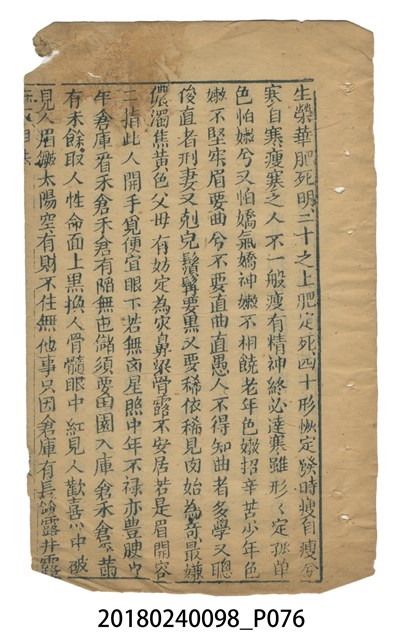 生榮華肥死明三十之上肥定死四十形恢定發時瘦自瘦兮
寒自寒瘦寒之人不一般瘦有精神終必達寒雖形形定孤单
色怕嫩兮又怕嬌氣嬌神嫩不相饒老年色嫩招辛苦少年色
嫩不堅牢眉要曲兮不要直曲直愚人不得知曲者多學又聰
俊直者刑妻又剋兒鬚髯要黑又要稀依稀見肉始為奇最嫌
儂濁焦黄色父母有妨定為灾鼻梁骨露不安居若是眉開容
二指此人開手覓便宜眼下若無凶星照中年不禄亦豊腴
年倉庫看禾倉禾倉有陷無屯儲須要田園入庫倉禾倉
有禾餘殺人性命面上黑換人骨髓眼中紅見人歡喜心中破
見人眉皺太陽空有財不住無他事只因倉庫有長 露井露
20180240098_P076